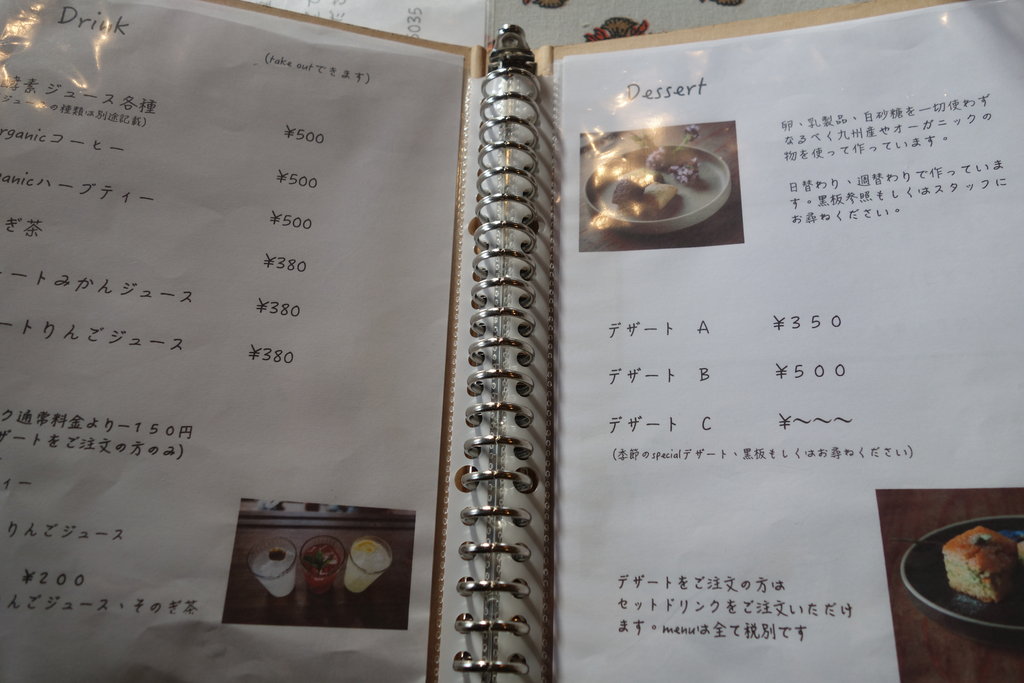 Drink
(take outできます)
酵素ジュース各種
ジュースの種類は別途記載)
¥500
rganicコーヒー
¥500
ganicハーブティー
¥500
ぎ茶
¥380
ートみかんジュース
¥380
ートりんごジュース
¥380
ク通常料金より－１５０円
ザートをご注文の方のみ)
ィー
りんごジュース
¥２００
んごジュース、そのぎ茶
035
Dessert
卵、乳製品、白砂糖を一切使わず
なるべく九州産やオーガニックの
物を使って作っています。
日替わり、週替わりで作っていま
す。黒板参照もしくはスタッフに
お尋ねください。
デザート A ¥３５０
デザート B ¥５００
デザート C ¥〜〜〜
(季節のspecialデザート、黒板もしくはお尋ねください)
デザートをご注文の方は
セットドリンクをご注文いただけ
ます。menuは全て税別です